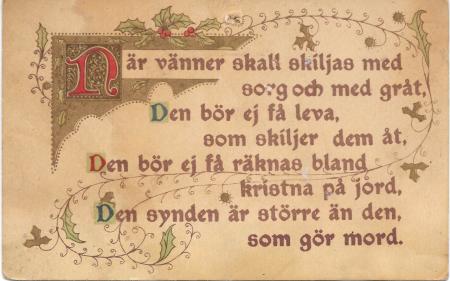 När vänner skall skiljas med
sorg och med gråt,
Den bör ej få leva,
som skiljer dem åt,
Den bör ej få räknas bland
kristna på jord,
Den synden är större än den,
som gör mord.